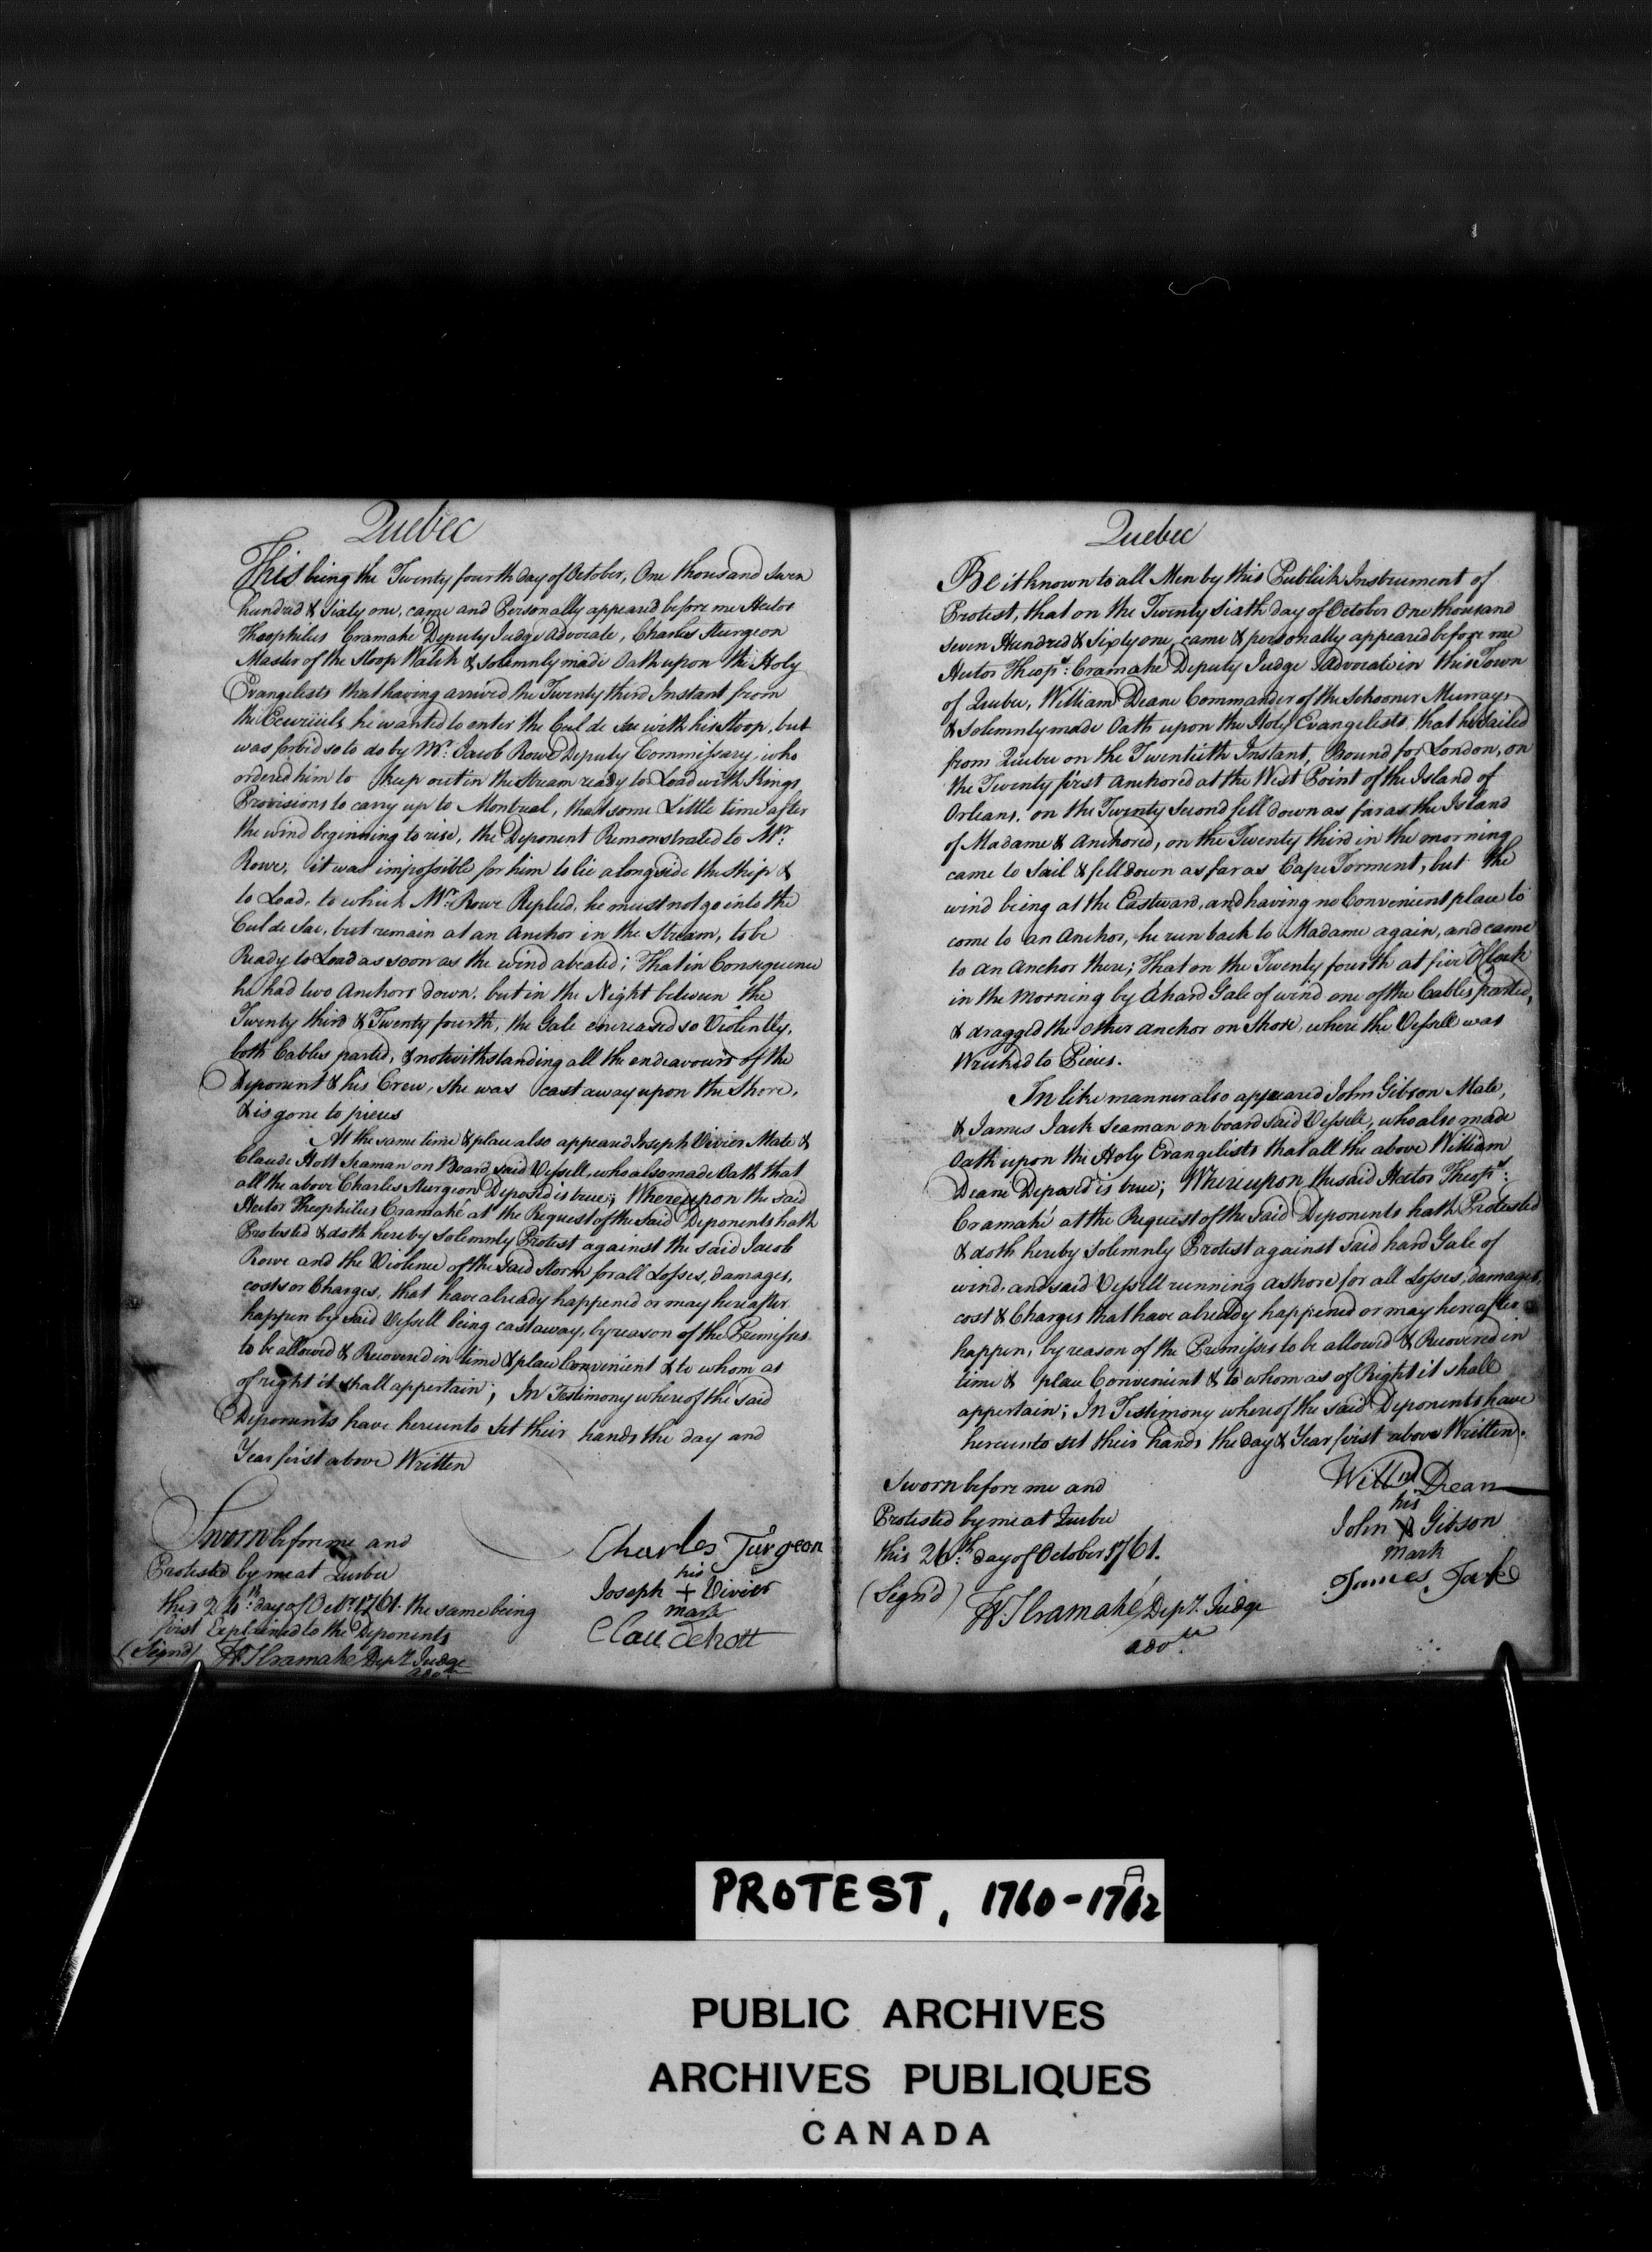 Quebec
This being the Twenty fourth day of October, One thousand Seven
hundred & Sixty one, came and Personally appeared before me Hector
Theophilus Cramahé Deputy Judge Advocate, Charles Sturgeon
Master of the Sloop & Solemnly made Oath upon the Holy
Evangelists that having arrived the Twenty third Instant from
the he wanted to enter the Cul de Sac with his Sloop, but
was forbid so to do by Mr. Jacob Rowe Deputy Commissary, who
ordered him to keep out in the Stream ready to Load with Kings
Provisions to carry up to Montreal, that some Little time after
the wind beginning to rise, the Deponent Remonstrated to Mr:
Rowe, it was impossible for him to lie alongside the Ship &
to Load, to which Mr. Rowe Replied, he must not go into the
Cul de Sac, but remain at an Anchor in the Stream, to be
Ready to Load as soon as the wind abated; That in Consequence
he had two Anchors down, but in the Night between the
Twenty third & Twenty fourth, the Gale encreased so Violently,
both Cables parted, & notwithstanding all the endeavours of the
Deponent & his Crew, she was cast away upon the Shore,
& is gone to pieces
At the same time & place also appeared Joseph Vivier Mate &
Claude Hott Seaman on Board said Vessell, who also made Oath that
all the above Charles Sturgeon Deposed is true; Whereupon the said
Hector Theophilus Cramahé at the Request of the said Deponents hath
Protested & doth hereby Solemnly Protest against the said Jacob
Rowe and the Violence of the said Storm for all Losses, damages,
costs or Charges, that have already happened or may hereafter
happen by said Vessell being cast away, by reason of the Premisses
to be allowed & Recovered in time & place Convenient & to whom as
of right it shall appertain; In Testimony whereof the said
Deponents have hereunto set their hands the day and
Year first above Written
Sworn before me and
Protested by me at Quebec
this 26th. day of Octr. 1761. the same being
first Explained to the Deponents
(Signd) HT Cramahé Depy. Judge
advte.
Charles Turgeon
his
Joseph + Vivier
mark
Claude hott
Quebec
Be it known to all Men by this Publick Instrument of
Protest, that on the Twenty Sixth day of October One thousand
seven Hundred & Sixty one, came & personally appeared before me
Hector Theops: Cramahé Deputy Judge Advocate in this Town
of Quebec, William Deane Commander of the Schooner Murray,
& Solemnly made Oath upon the Holy Evangelists, that he Sailed
from Quebec on the Twentieth Instant, Bound for London, on
the Twenty first Anchored at the West Point of the Island of
Orleans, on the Twenty Second fell down as far as the Island
of Madame & Anchored, on the Twenty third in the morning
came to Sail & fell down as far as Cape Torment, but the
wind being at the Eastward, and having no Convenient place to
come to an Anchor, he run back to Madame again, and came
to an Anchor there; That on the Twenty fourth at five O'Clock
in the Morning by A hard Gale of wind one of the Cables parted,
& dragged the other Anchor on Shore, where the Vessell was
Wrecked to Pieces.
In like manner also appeared John Gibson Mate,
& James Jack Seaman on board said Vessell, who also made
Oath upon the Holy Evangelists that all the above William
Deane Deposed is true; Whereupon the said Hector Theops:
Cramahé at the Request of the said Deponents hath Protested
& doth hereby Solemnly Protest against said hard Gale of
wind, and said Vessell running ashore for all Losses, damages,
cost & Charges that have already happened or may hereafter
happen, by reason of the Premisses to be allowed & Recovered in
time & place Convenient & to whom as of Right it shall
appertain; In Testimony whereof the said Deponents have
hereunto set their hands the day & Year first above Written.
Sworn before me and
Protested by me at Quebec
this 26th: day of October 1761.
(Sign'd) HT Cramahé Depy. Judge
advte.
Willm Dean
his
John Gibson
Mark
James Jack
PROTEST, 1760-1762
A
PUBLIC ARCHIVES
ARCHIVES PUBLIQUES
CANADA